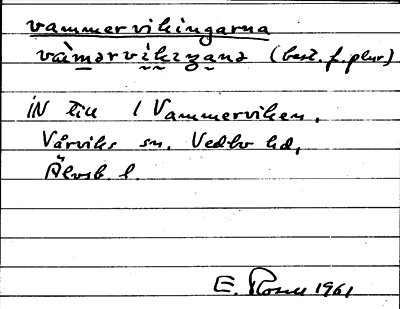 vammervikingarna
vàmərvikiŋana (best. f. plur)
IN till 1 Vammerviken,
Vårviks sn. Vedbo hd,
Älvsb. l.
E. Rosell 1961